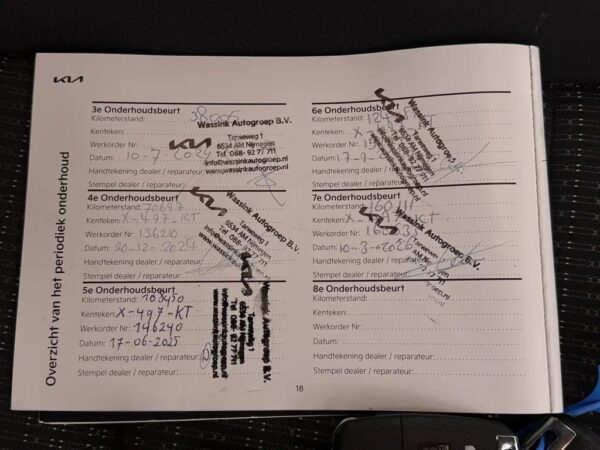 KIA
Overzicht van het periodiek onderhoud
3e Onderhoudsbeurt
Kilometerstand:
Kenteken:
Werkorder Nr:
Datum: 10-7-2024
Handtekening dealer / reparateur:
Stempel dealer / reparateur:
KIA
Wassink Autogroep B.V.
Tarweweg 1
6534 AM Nijmegen
Tel. 088- 92 77 711
info@wassinkautogroep.nl
www.wassinkautogroep.nl
4e Onderhoudsbeurt
Kilometerstand: 70697
Kenteken: X-497-KT
Werkorder Nr: 136210
Datum: 20-12-2024
Handtekening dealer / reparateur:
Stempel dealer / reparateur:
KIA
Wassink Autogroep B.V.
Tarweweg 1
6534 AM Nijmegen
Tel. 088- 92 77 711
5e Onderhoudsbeurt
Kilometerstand: 108450
Kenteken: X-497-KT
Werkorder Nr: 146240
Datum: 17-06-2025
Handtekening dealer / reparateur:
Stempel dealer / reparateur:
KIA
Wassink Autogroep B.V.
Tarweweg 1
6534 AM Nijmegen
Tel. 088- 92 77 711
6e Onderhoudsbeurt
Kilometerstand:
Kenteken:
Werkorder Nr:
Datum:
Handtekening dealer / reparateur:
Stempel dealer / reparateur:
KIA
Wassink Autogroep B.V.
7e Onderhoudsbeurt
Kilometerstand:
Kenteken:
Werkorder Nr:
Datum: 10-3-2026
Handtekening dealer / reparateur:
Stempel dealer / reparateur:
KIA
Wassink Autogroep B.V.
8e Onderhoudsbeurt
Kilometerstand:
Kenteken:
Werkorder Nr:
Datum:
Handtekening dealer / reparateur:
Stempel dealer / reparateur:
18